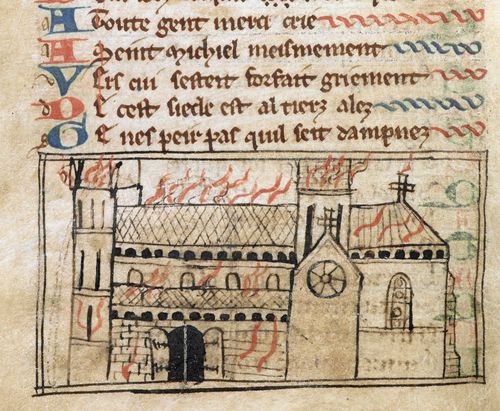 A Toute gent merci crie
A Seint Michiel meismement
V Lis cui sesteit forfait griement
D E cest siecle est al tierz alez
G E nes peir pas quil seit dampnez